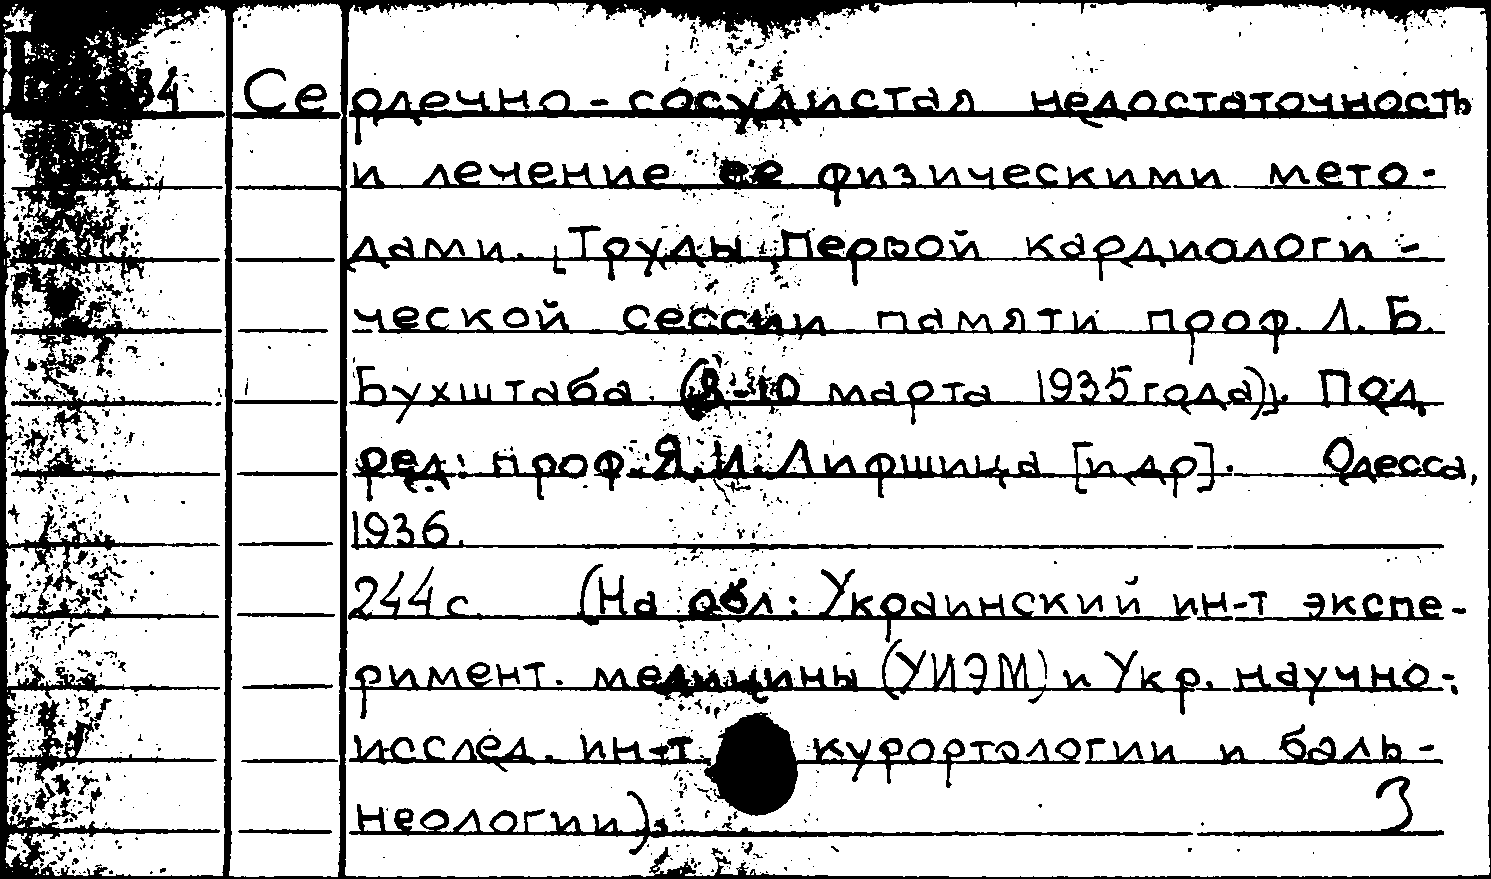 Сердечно-сосудистая недостаточность
и лечение ее физическими мето-
дами. [Труды Первой кардиологи-
ческой сессии памяти проф. Л. Б.
Бухштаба (8-10 марта 1935 года)]. Под
ред: проф. Я. И. Лифшица [и др]. Одесса,
1936.
244 с. (На обл: Украинский ин-т экспе-
римент. медицины (УИЭМ) и Укр. научно-
исслед. ин-т. курортологии и баль-
неологии).
3